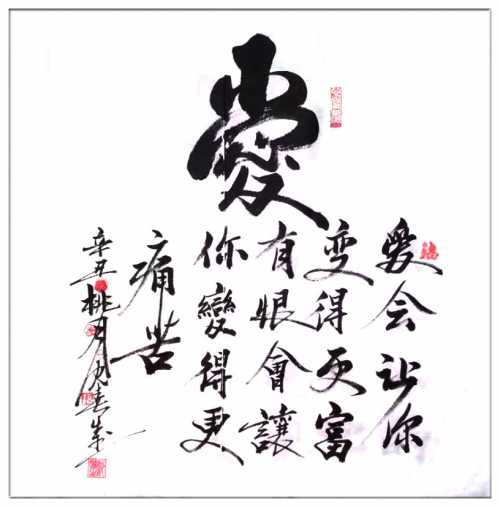 愛
爱会让你
变得更富
有恨會讓
你變得更
痛苦
辛丑桃月